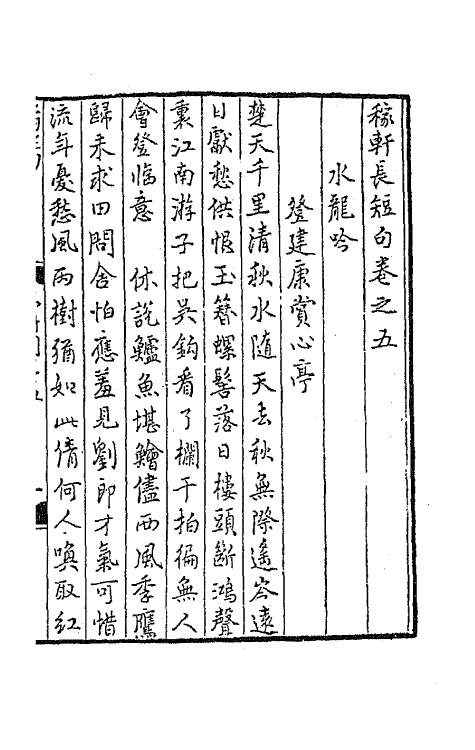 稼軒長短句卷之五
水龍吟
登建康賞心亭
楚天千里清秋水隨天去秋無際遙岑遠
目獻愁供恨玉簪螺髻落日樓頭斷鴻聲
裏江南游子把吳鉤看了欄干拍徧無人
會登臨意 休說鱸魚堪鱠儘西風季鷹
歸未求田問舍怕應羞見劉郎才氣可惜
流年憂愁風雨樹猶如此倩何人喚取紅